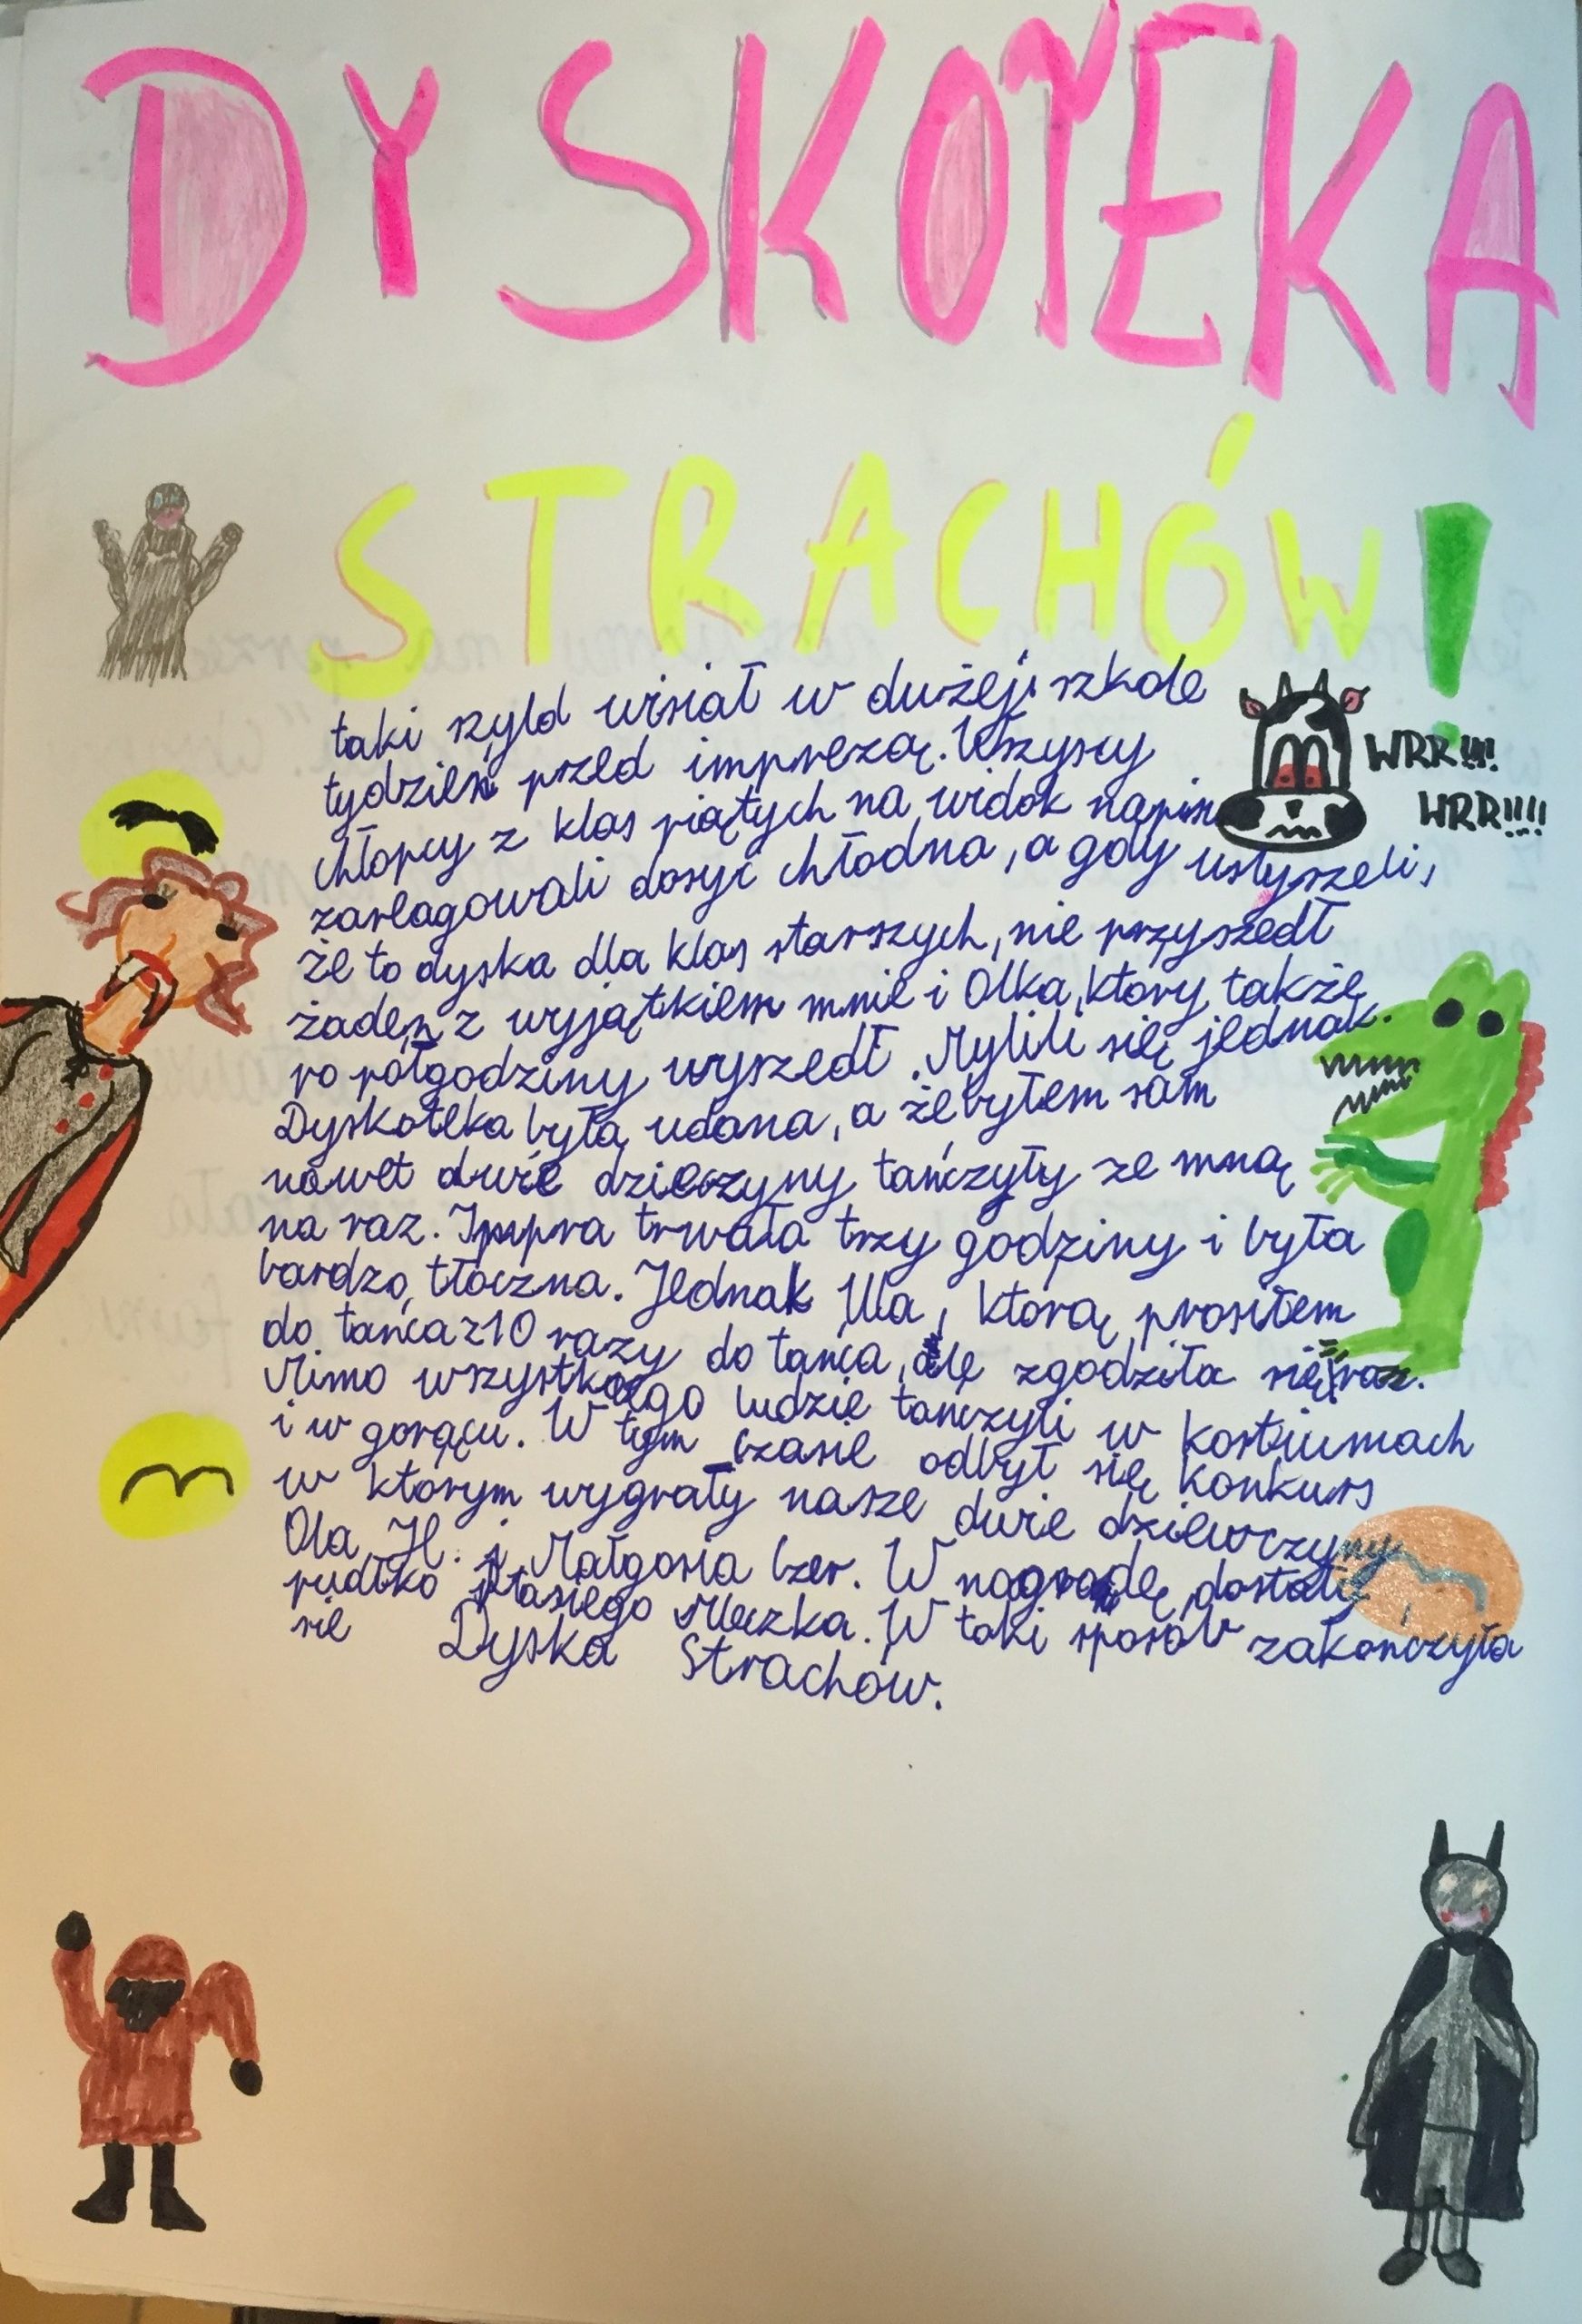 DYSKOTEKA
STRACHÓW!
taki szyld wisiał w dużej szkole
tydzień przed imprezą. Wszyscy
WRR!!!
WRR!!!!
chłopcy z klas piątych na widok napisu
zareagowali dosyć chłodno, a gdy usłyszeli,
że to dyska dla klas starszych, nie przyszedł
żaden z wyjątkiem mnie i Olka, który także
po półgodziny wyszedł. Mylili się jednak.
Dyskoteka była udana, a że byłem sam
nawet dwie dziewczyny tańczyły ze mną
na raz. Impra trwała trzy godziny i była
bardzo tłoczna. Jednak Ula, którą prosiłem
do tańca z 10 razy do tańca, ale zgodziła się raz.
Mimo wszystkiego ludzie tańczyli w kostiumach
i w gorącu. W tym czasie odbył się konkurs
w którym wygrały nasze dwie dziewczyny
Ola H. i Małgosia Czer. W nagrodę dostały
pudłko ptasiego Mleczka. W taki sposób zakończyła
sie Dyska Strachów.